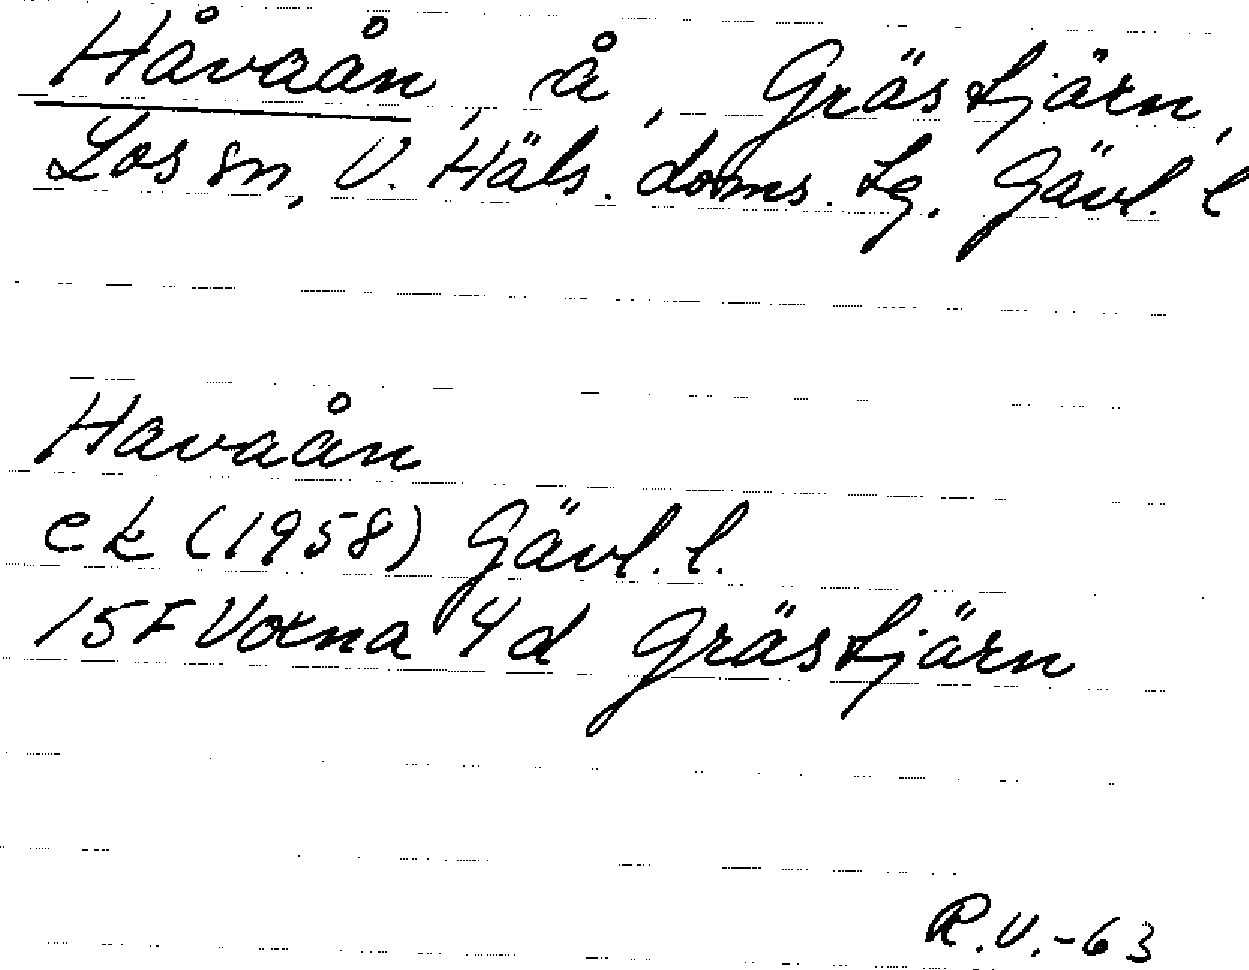 Håvaån, å, Grästjärn,
Los sn, V. Häls. doms. tg. Gävl. l
Havaån
ek (1958) Gävl. l.
15F Voxna 4d Grästjärn
R.V.-63